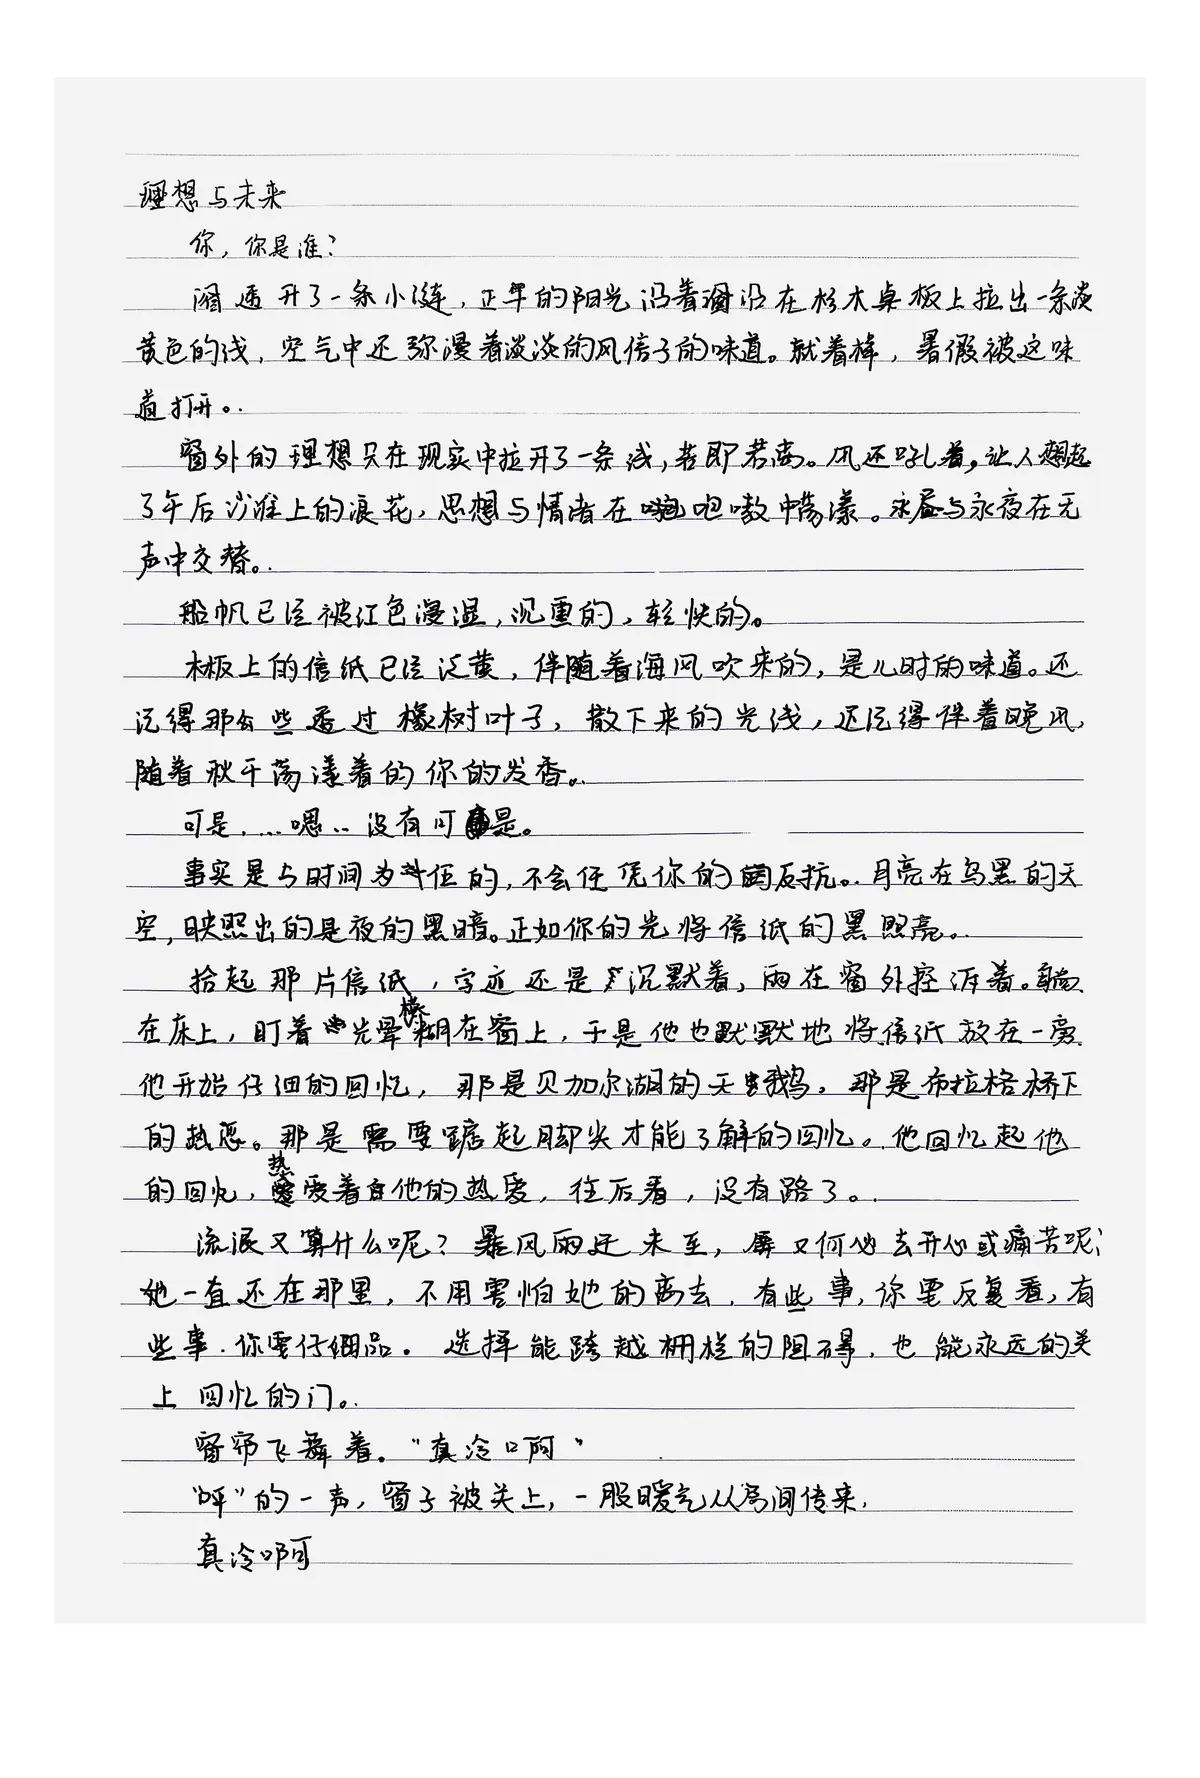 理想与未来
你，你是谁？
透开了一条小涟，正午的阳光沿着沿在杉木桌板上拉出一条淡
黄色的线，空气中还弥漫着淡淡的风信子的味道。就着掉，暑假被这味
道打开。
窗外的理想只在现实中拉开了一条线，若即若离。风还吼着，让人想起
了午后沙滩上的浪花，思想与情绪在咆嗷中荡漾。永昼与永夜在无
声中交替。
船帆已经被红色漫湿，沉重的，轻快的。
木板上的信纸已经泛黄，伴随着海风吹来的，是儿时的味道。还
记得那些透过橡树叶子，散下来的光线，还记得伴着晚风，
随着秋千荡漾着的你的发香。
可是，…嗯‥没有可是。
事实是与时间为伍的，不会任凭你的反抗。月亮在乌黑的天
空，映照出的是夜的黑暗。正如你的光将信纸的黑照亮。
拾起那片信纸，字迹还是沉默着，雨在窗外控诉着。躺
在床上，盯着光晕模糊在窗上，于是他也默默地将信纸放在一旁
他开始仔细的回忆，那是贝加尔湖的天鹅，那是布拉格桥下
的热恋。那是需要踮起脚尖才能了解的回忆。他回忆起他
的回忆，热爱着他的热爱，往后看，没有路了。
流浪又算什么呢？暴风雨还未至，屏又何必去开心或痛苦呢；
她一直还在那里，不用害怕她的离去．有些事，你要反复看，有
些事．你要仔细品。选择能跨越栅栏的阻碍，也能永远的关
上回忆的门。
窗帘飞舞着．“真冷啊”
“呯”的一声，窗子被关上，一股暖气从房间传来．
真冷啊